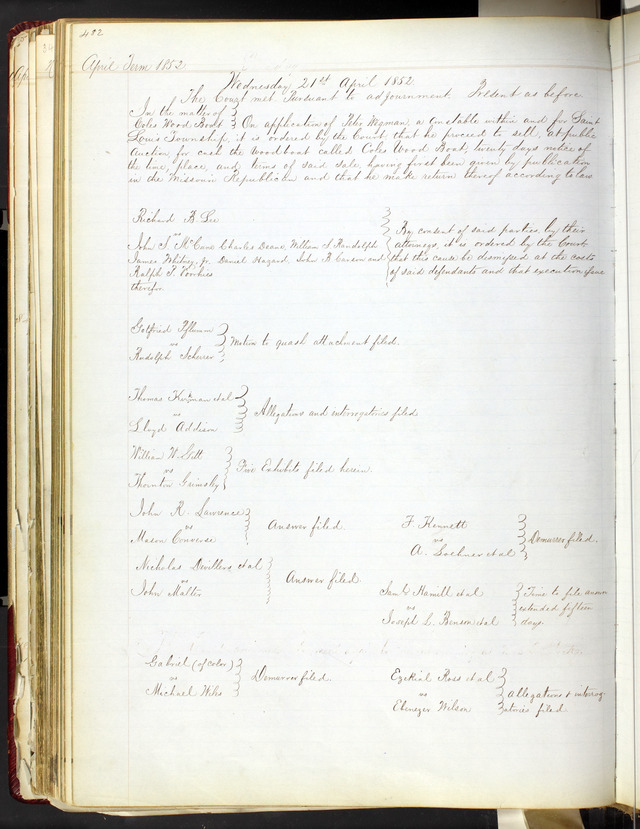 402
April Term 1852
Wednesday 21st April 1852
The Court met Pursuant to adjournment Present as before
In the matter of
Coles Wood Boat
On application of Peter Wayman, a Constable within and for Saint
Louis Township, it is ordered by the Court, that he proceed to sell, at public
Auction, for cash the Woodboat called Coles Wood Boat, twenty days notice of
the time, place, and terms of said sale, having first been given by publication
in the Missouri Republican and that he make return thereof according to law
Richard B Lee
vs
John S. McCune Charles Deane, William S. Randolph
James Whitney, jr. Daniel Hazard, John B Carson and
Ralph P. Voorhies
By consent of said parties, by their
attorneys, it is ordered by the Court
that this cause be dismissed at the costs
of said defendants and that execution issue
therefor.
Gotfried Pflumm
vs
Rudolph Scherer
Motion to quash attachment filed.
Thomas et al
vs
Lloyd Addison
Allegations and interrogatories filed
William W. Gitt
vs
Thornton Grimsley
Five Exhibits filed herein.
John R. Lawrence
vs
Mason Converse
Answer filed
F Kennett
vs
A. Lochner et al
Demurrer filed.
Nicholas Devillers et al
vs
John Malter
Answer filed.
Saml Hamill et al
vs
Joseph L. Benson et al
Time to file answer
extended fifteen
days.
Gabriel (of color)
vs
Michael Wiles
Demurrer filed.
Ezekial Ross et al
vs
Ebenezer Wilson
allegations & interrog-
atories filed.